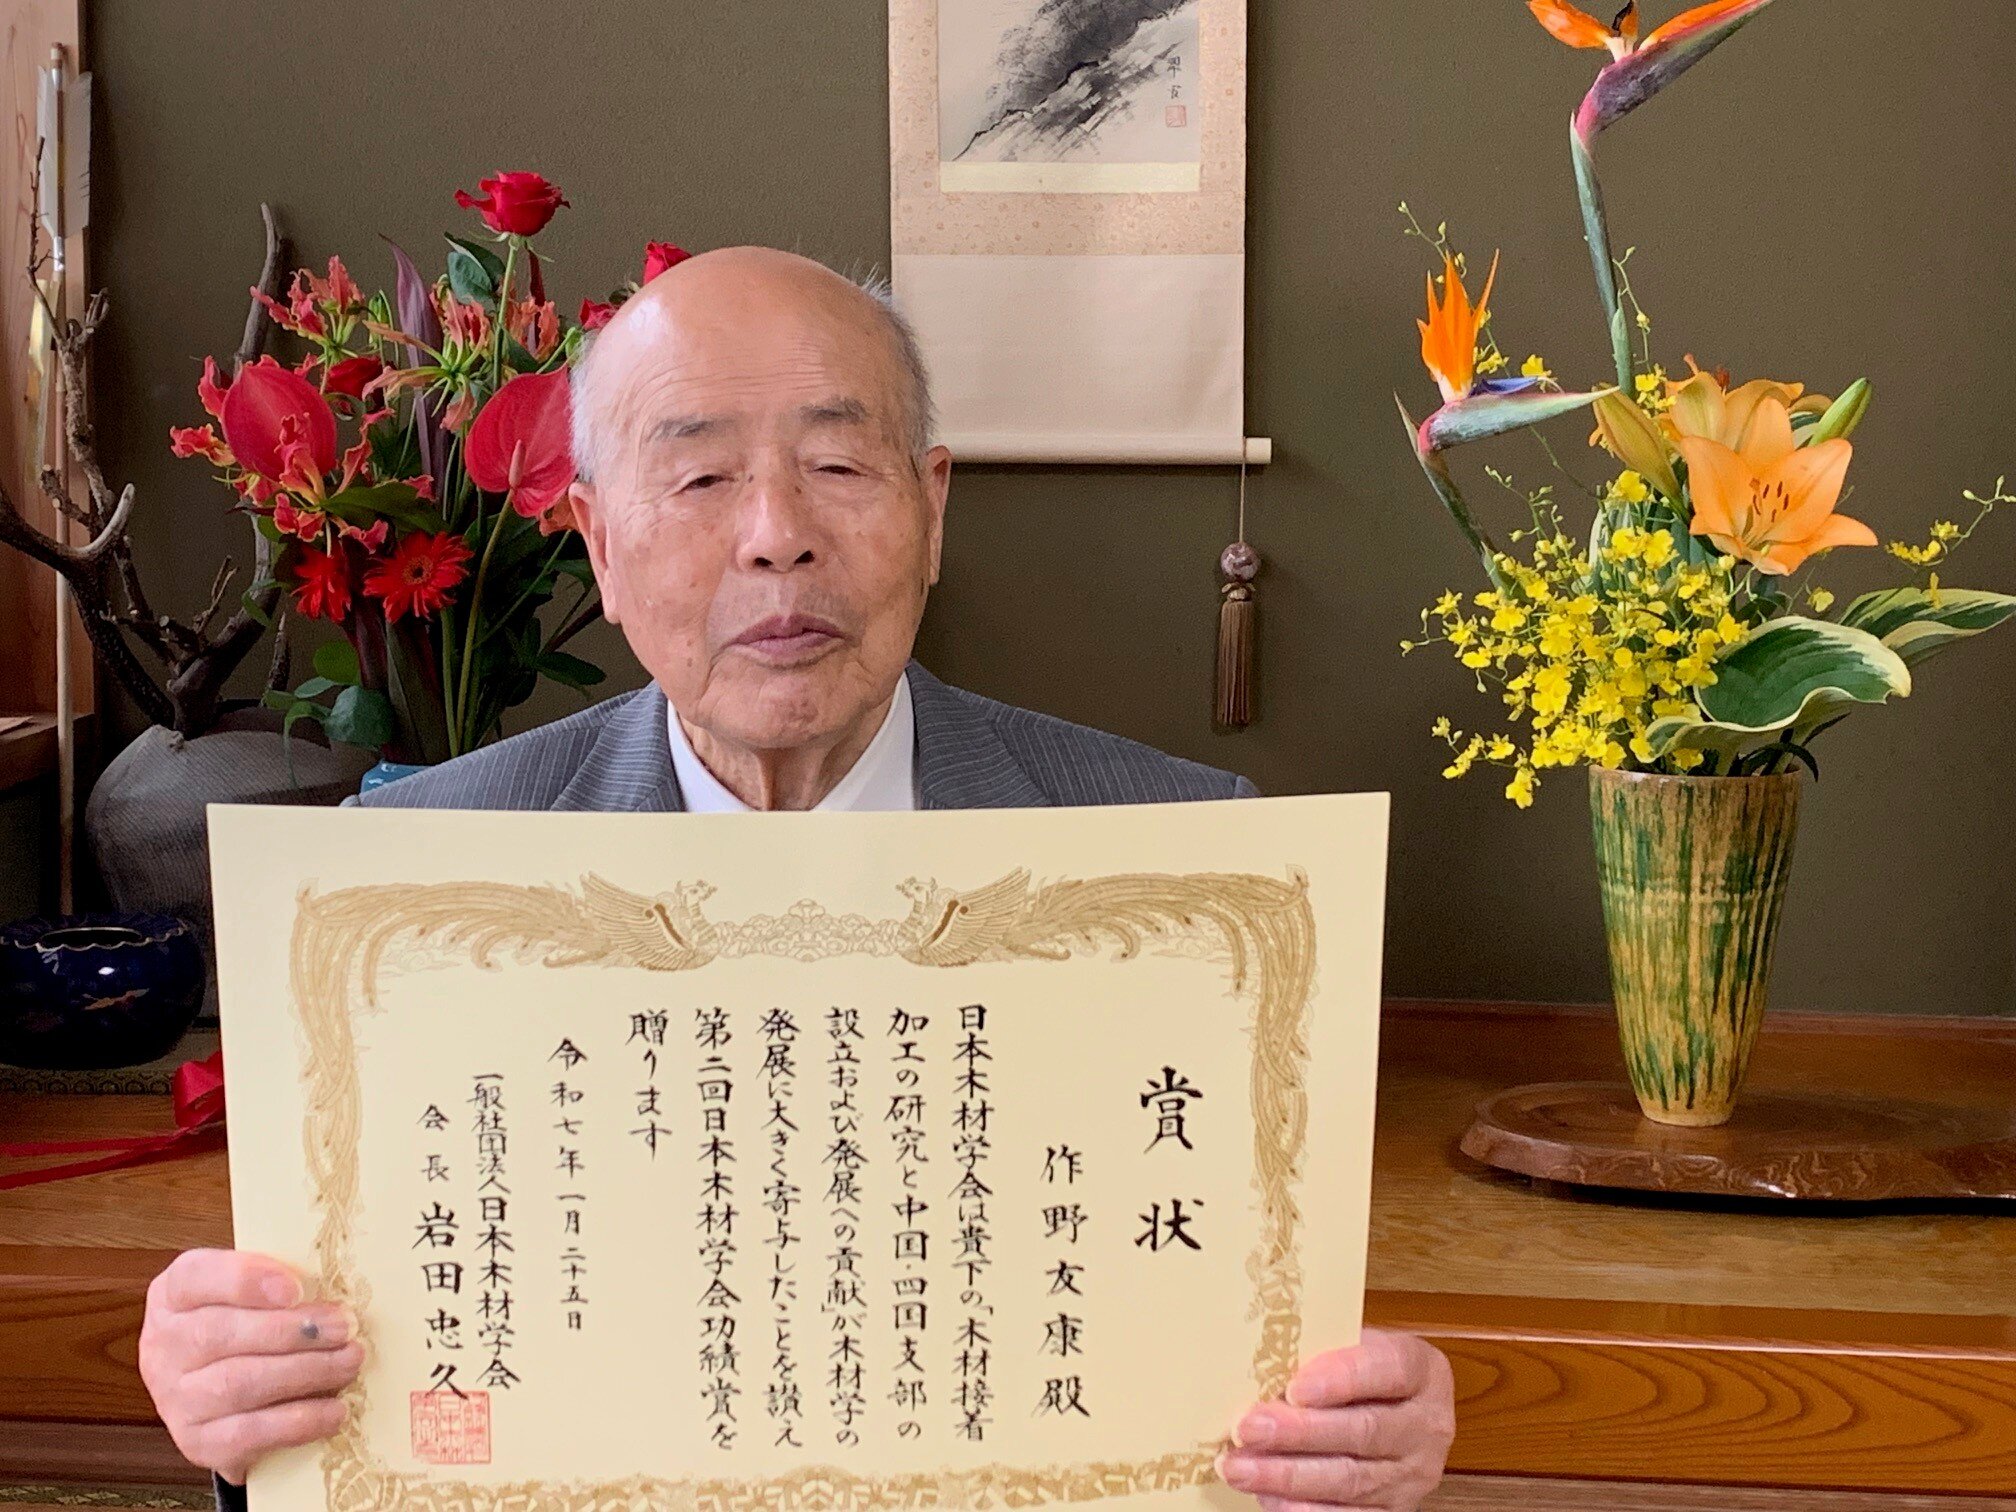 賞状
作野友康殿
日本木材学会は貴下の「木材接着
加工の研究と中国・四国支部の
設立および発展への貢献」が木材学の
発展に大きく寄与したことを讃え
第二回日本木材学会功績賞を
贈ります
令和七年一月二十五日
一般社団法人日本木材学会
会長 岩田忠久